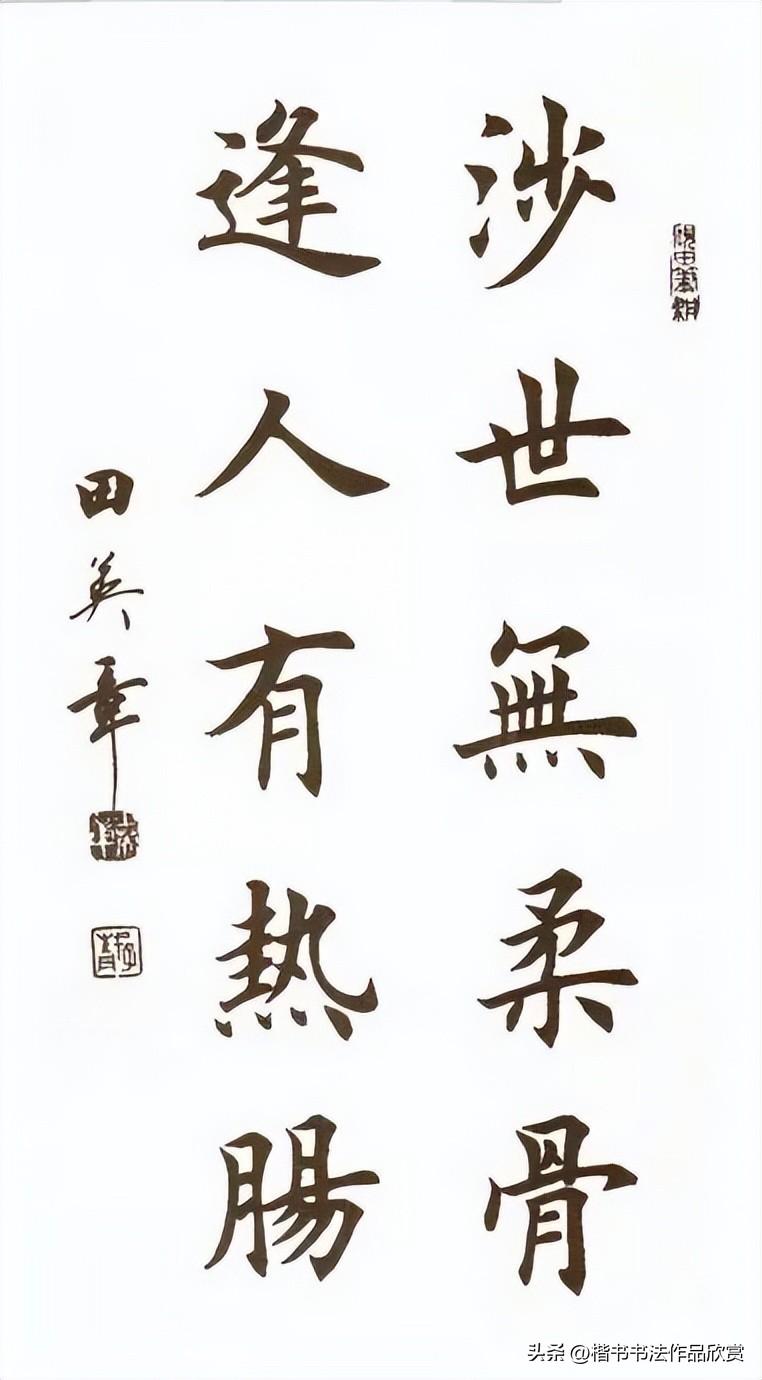 涉世無柔骨
逢人有熱腸
田英章
头条 @楷书书法作品欣赏